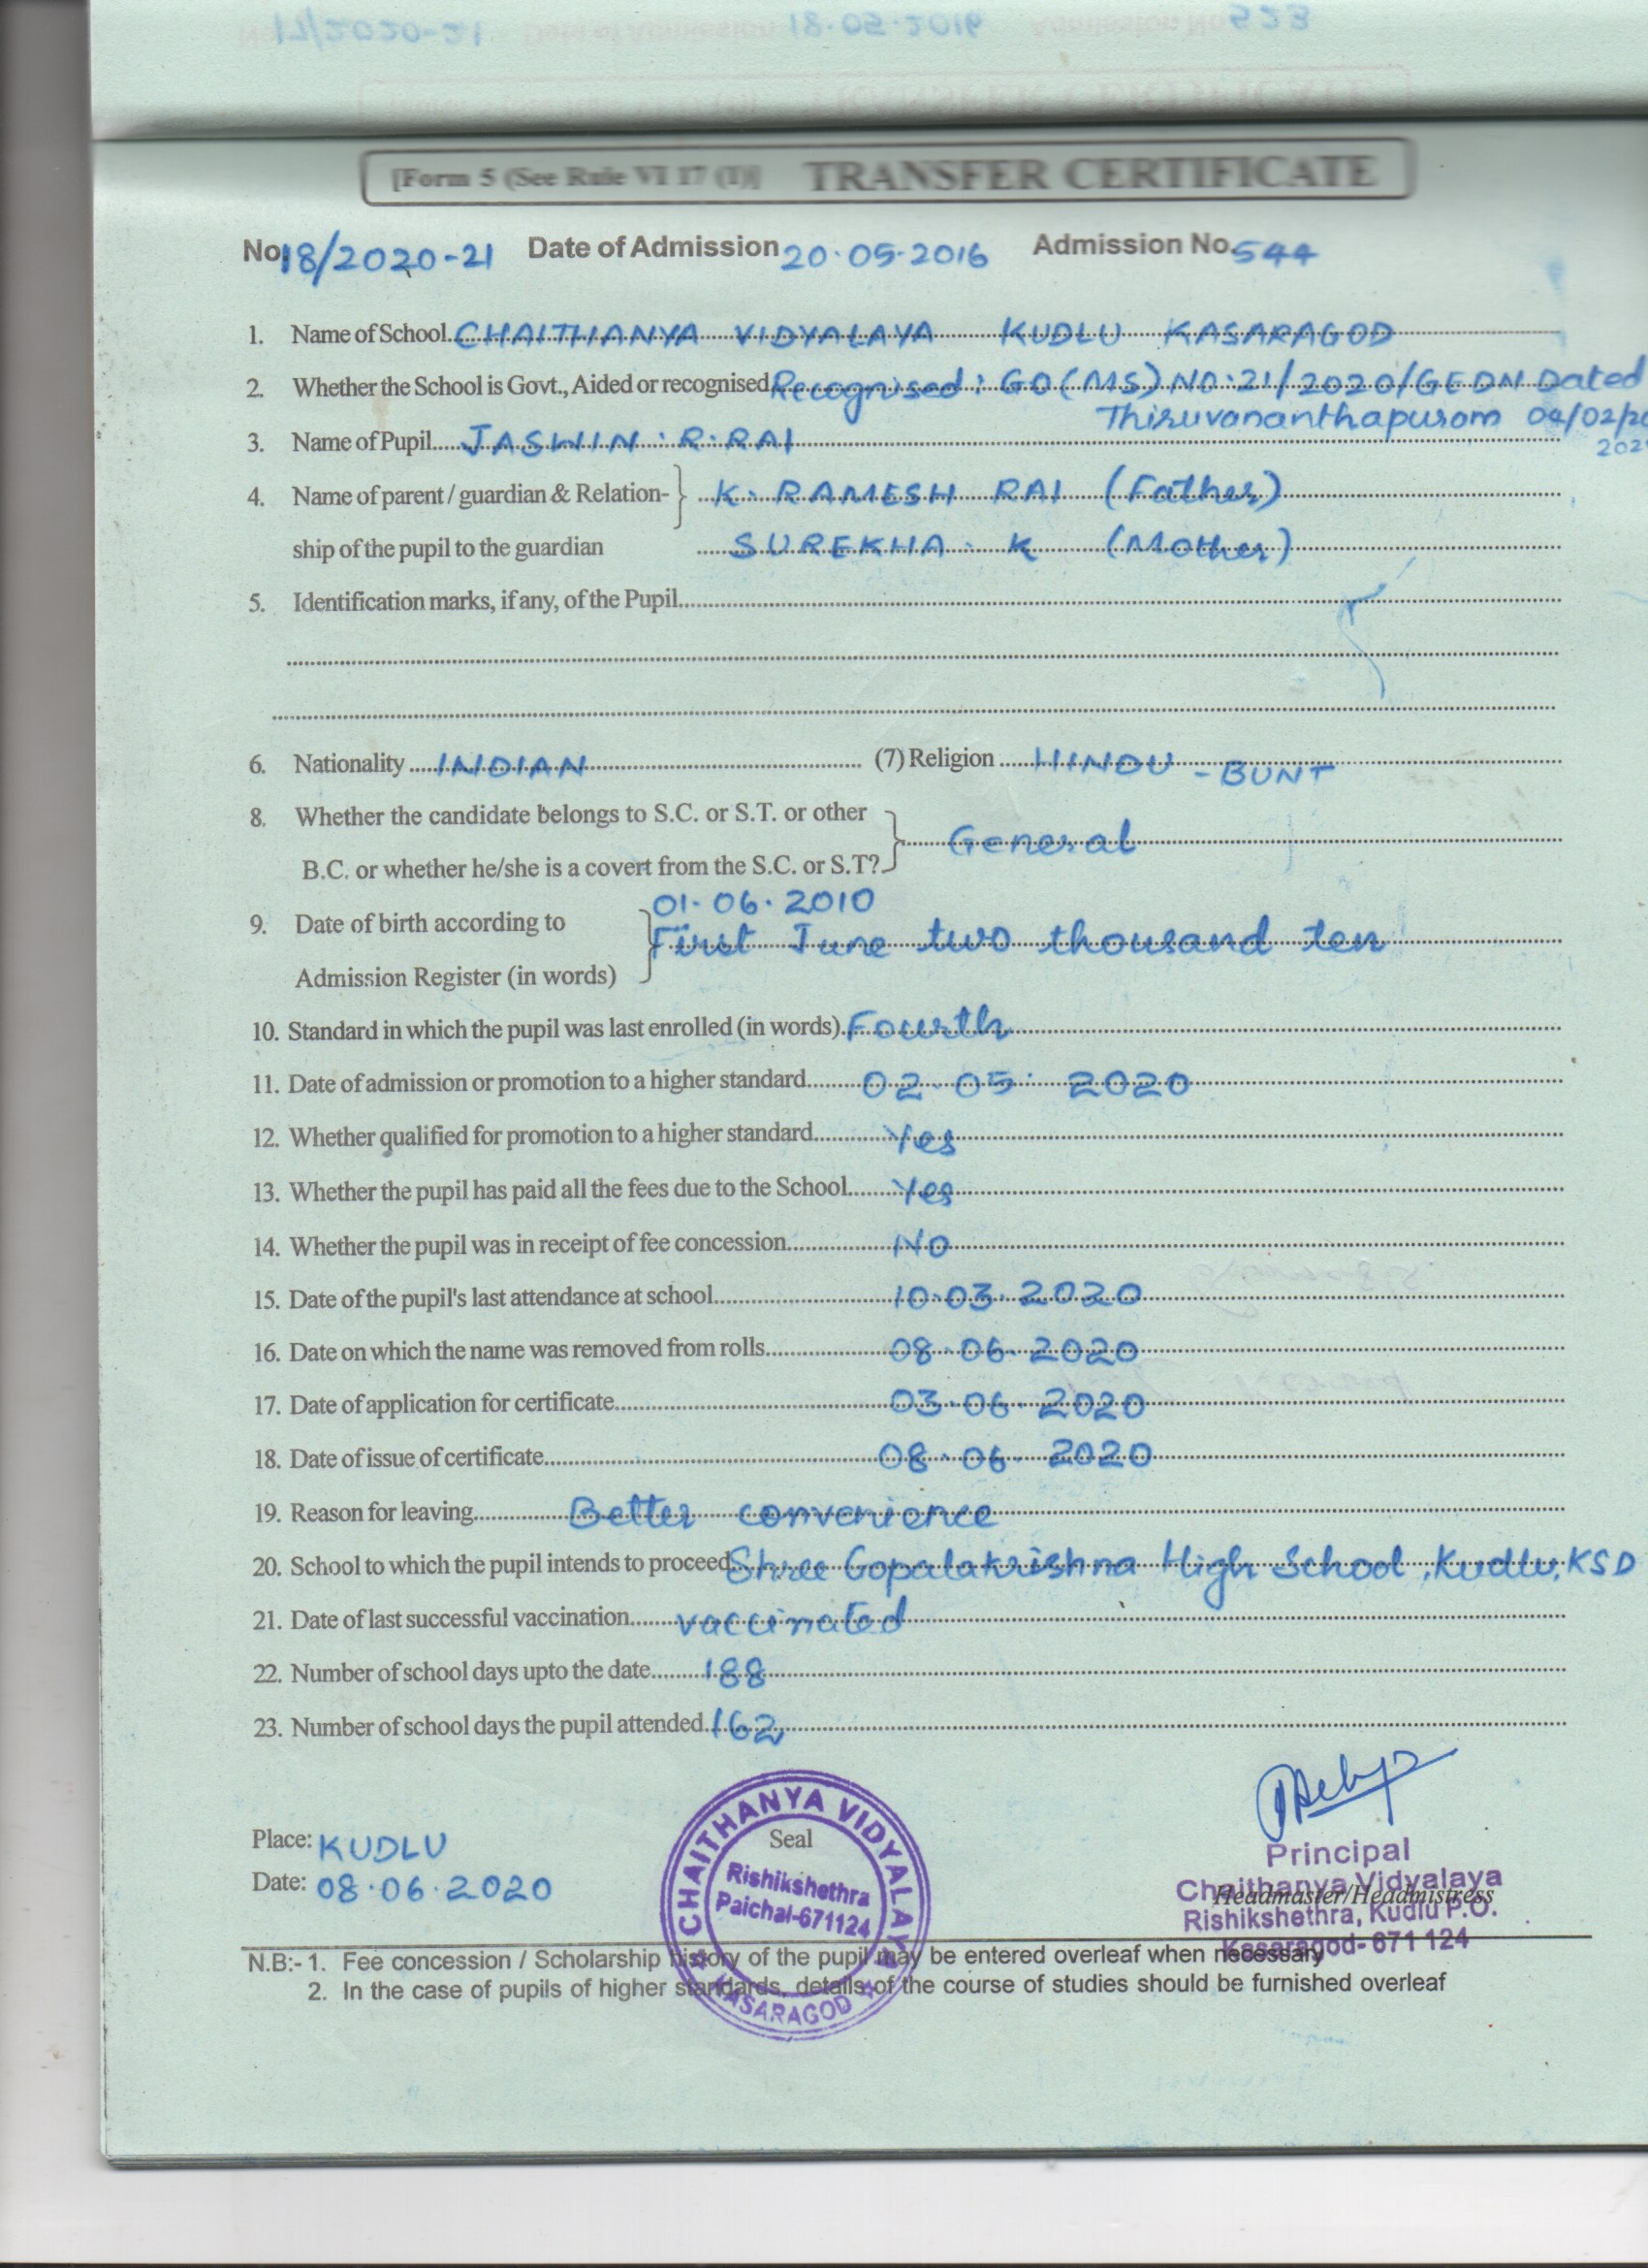 [Form 5 (See Rule VI 17 (1)] TRANSFER CERTIFICATE
No. 18/2020-21 Date of Admission 20.05.2016 Admission No. 544
1. Name of School CHAITHANYA VIDYALAYA KUDLU KASARAGOD
2. Whether the School is Govt., Aided or recognised Recognised : GO(MS) NO:21/2020/GEDN Dated
Thiruvananthapuram 04/02/20
202
3. Name of Pupil JASWIN . R. RAI
4. Name of parent / guardian & Relation- K. RAMESH RAI (Father)
ship of the pupil to the guardian SUREKHA . K (Mother)
5. Identification marks, if any, of the Pupil
6. Nationality INDIAN (7) Religion HINDU - BUNT
8. Whether the candidate belongs to S.C. or S.T. or other
B.C. or whether he/she is a covert from the S.C. or S.T? General
01.06.2010
9. Date of birth according to First June two thousand ten
Admission Register (in words)
10. Standard in which the pupil was last enrolled (in words) Fourth
11. Date of admission or promotion to a higher standard 02.05.2020
12. Whether qualified for promotion to a higher standard Yes
13. Whether the pupil has paid all the fees due to the School Yes
14. Whether the pupil was in receipt of fee concession NO
15. Date of the pupil's last attendance at school 10.03.2020
16. Date on which the name was removed from rolls 08.06.2020
17. Date of application for certificate 03.06.2020
18. Date of issue of certificate 08.06.2020
19. Reason for leaving Better convenience
20. School to which the pupil intends to proceed Shree Gopalakrishna High School ,Kudlu, KSD
21. Date of last successful vaccination vaccinated
22. Number of school days upto the date 188
23. Number of school days the pupil attended 162
Place: KUDLU
Date: 08.06.2020
Seal
CHAITHANYA VIDYALAYA
Rishikshethra
Paichal-671124
KASARAGOD
Principal
Chaithanya Vidyalaya
Headmaster/Headmistress
Rishikshethra, Kudlu P.O.
Kasaragod- 671 124
N.B:- 1. Fee concession / Scholarship history of the pupil may be entered overleaf when necessary
2. In the case of pupils of higher standards, details of the course of studies should be furnished overleaf